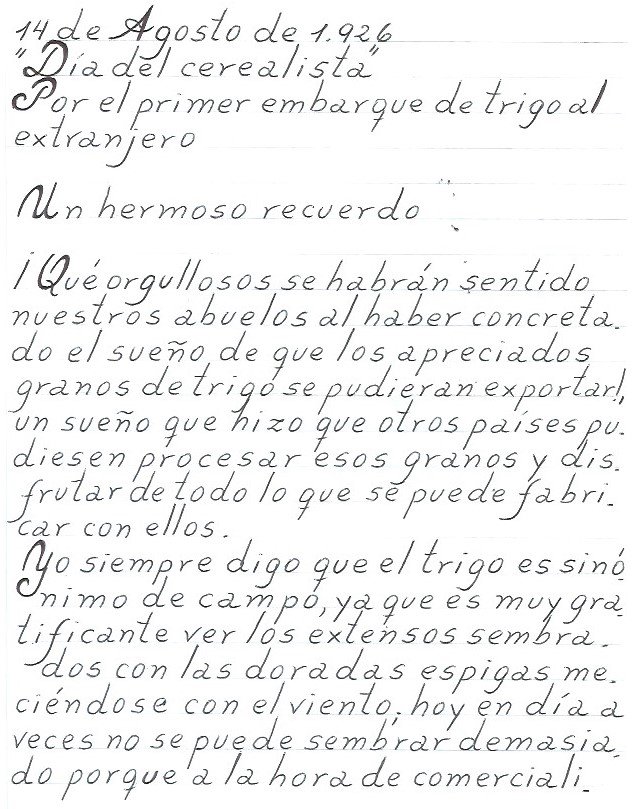 14 de Agosto de 1.926
"Día del cerealista"
Por el primer embarque de trigo al
extranjero
Un hermoso recuerdo
¡Qué orgullosos se habrán sentido
nuestros abuelos al haber concreta-
do el sueño de que los apreciados
granos de trigo se pudieran exportar!,
un sueño que hizo que otros países pu-
diesen procesar esos granos y dis-
frutar de todo lo que se puede fabri-
car con ellos.
Yo siempre digo que el trigo es sinó-
nimo de campo, ya que es muy gra-
tificante ver los extensos sembra-
dos con las doradas espigas me-
ciéndose con el viento; hoy en día a
veces no se puede sembrar demasia-
do porque a la hora de comerciali-